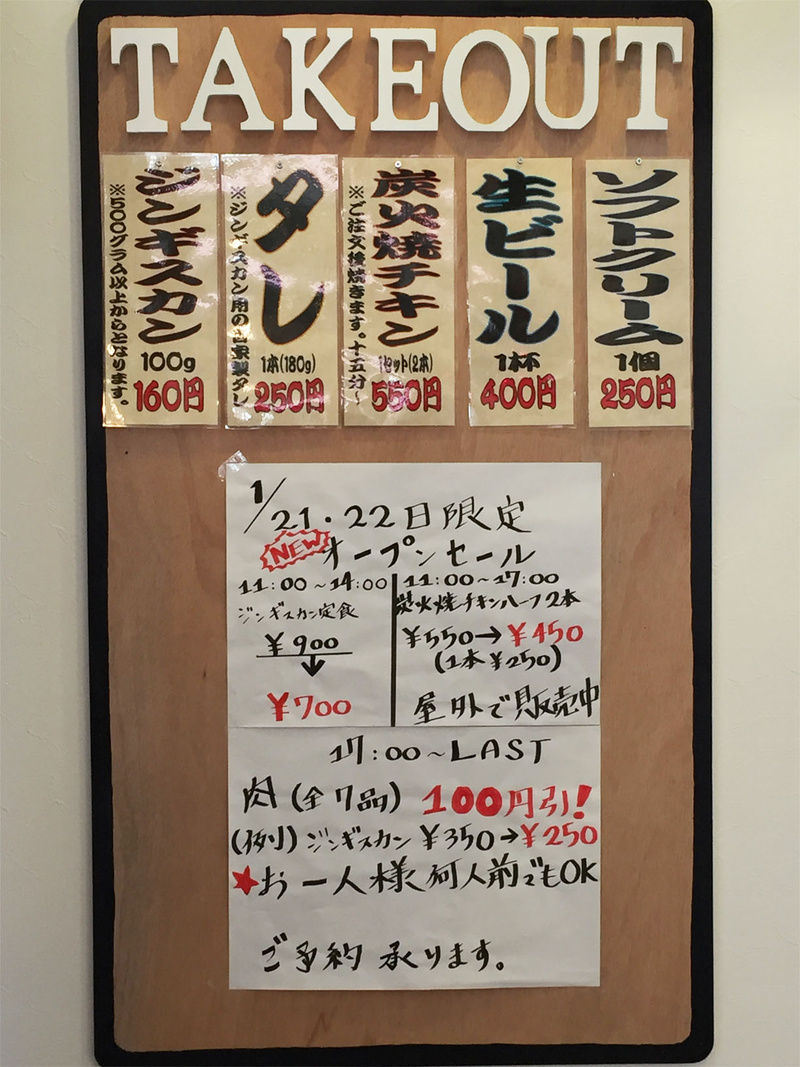 TAKEOUT
ジンギスカン
100g
160円
※500グラム以上からとなります。
タレ
1本(180g)
250円
※ジンギスカン用の自家製タレ
炭火焼チキン
1セット(2本)
550円
※ご注文後焼きます。十五分～
生ビール
1杯
400円
ソフトクリーム
1個
250円
1/21・22日限定
NEW オープンセール
11:00～14:00
ジンギスカン定食
¥900
↓
¥700
11:00～17:00
炭火焼チキンハーフ2本
¥550→¥450
(1本¥250)
屋外で販売中
17:00～LAST
肉(全7品) 100円引!
(例)ジンギスカン ¥350→¥250
★お一人様何人前でもOK
ご予約承ります。